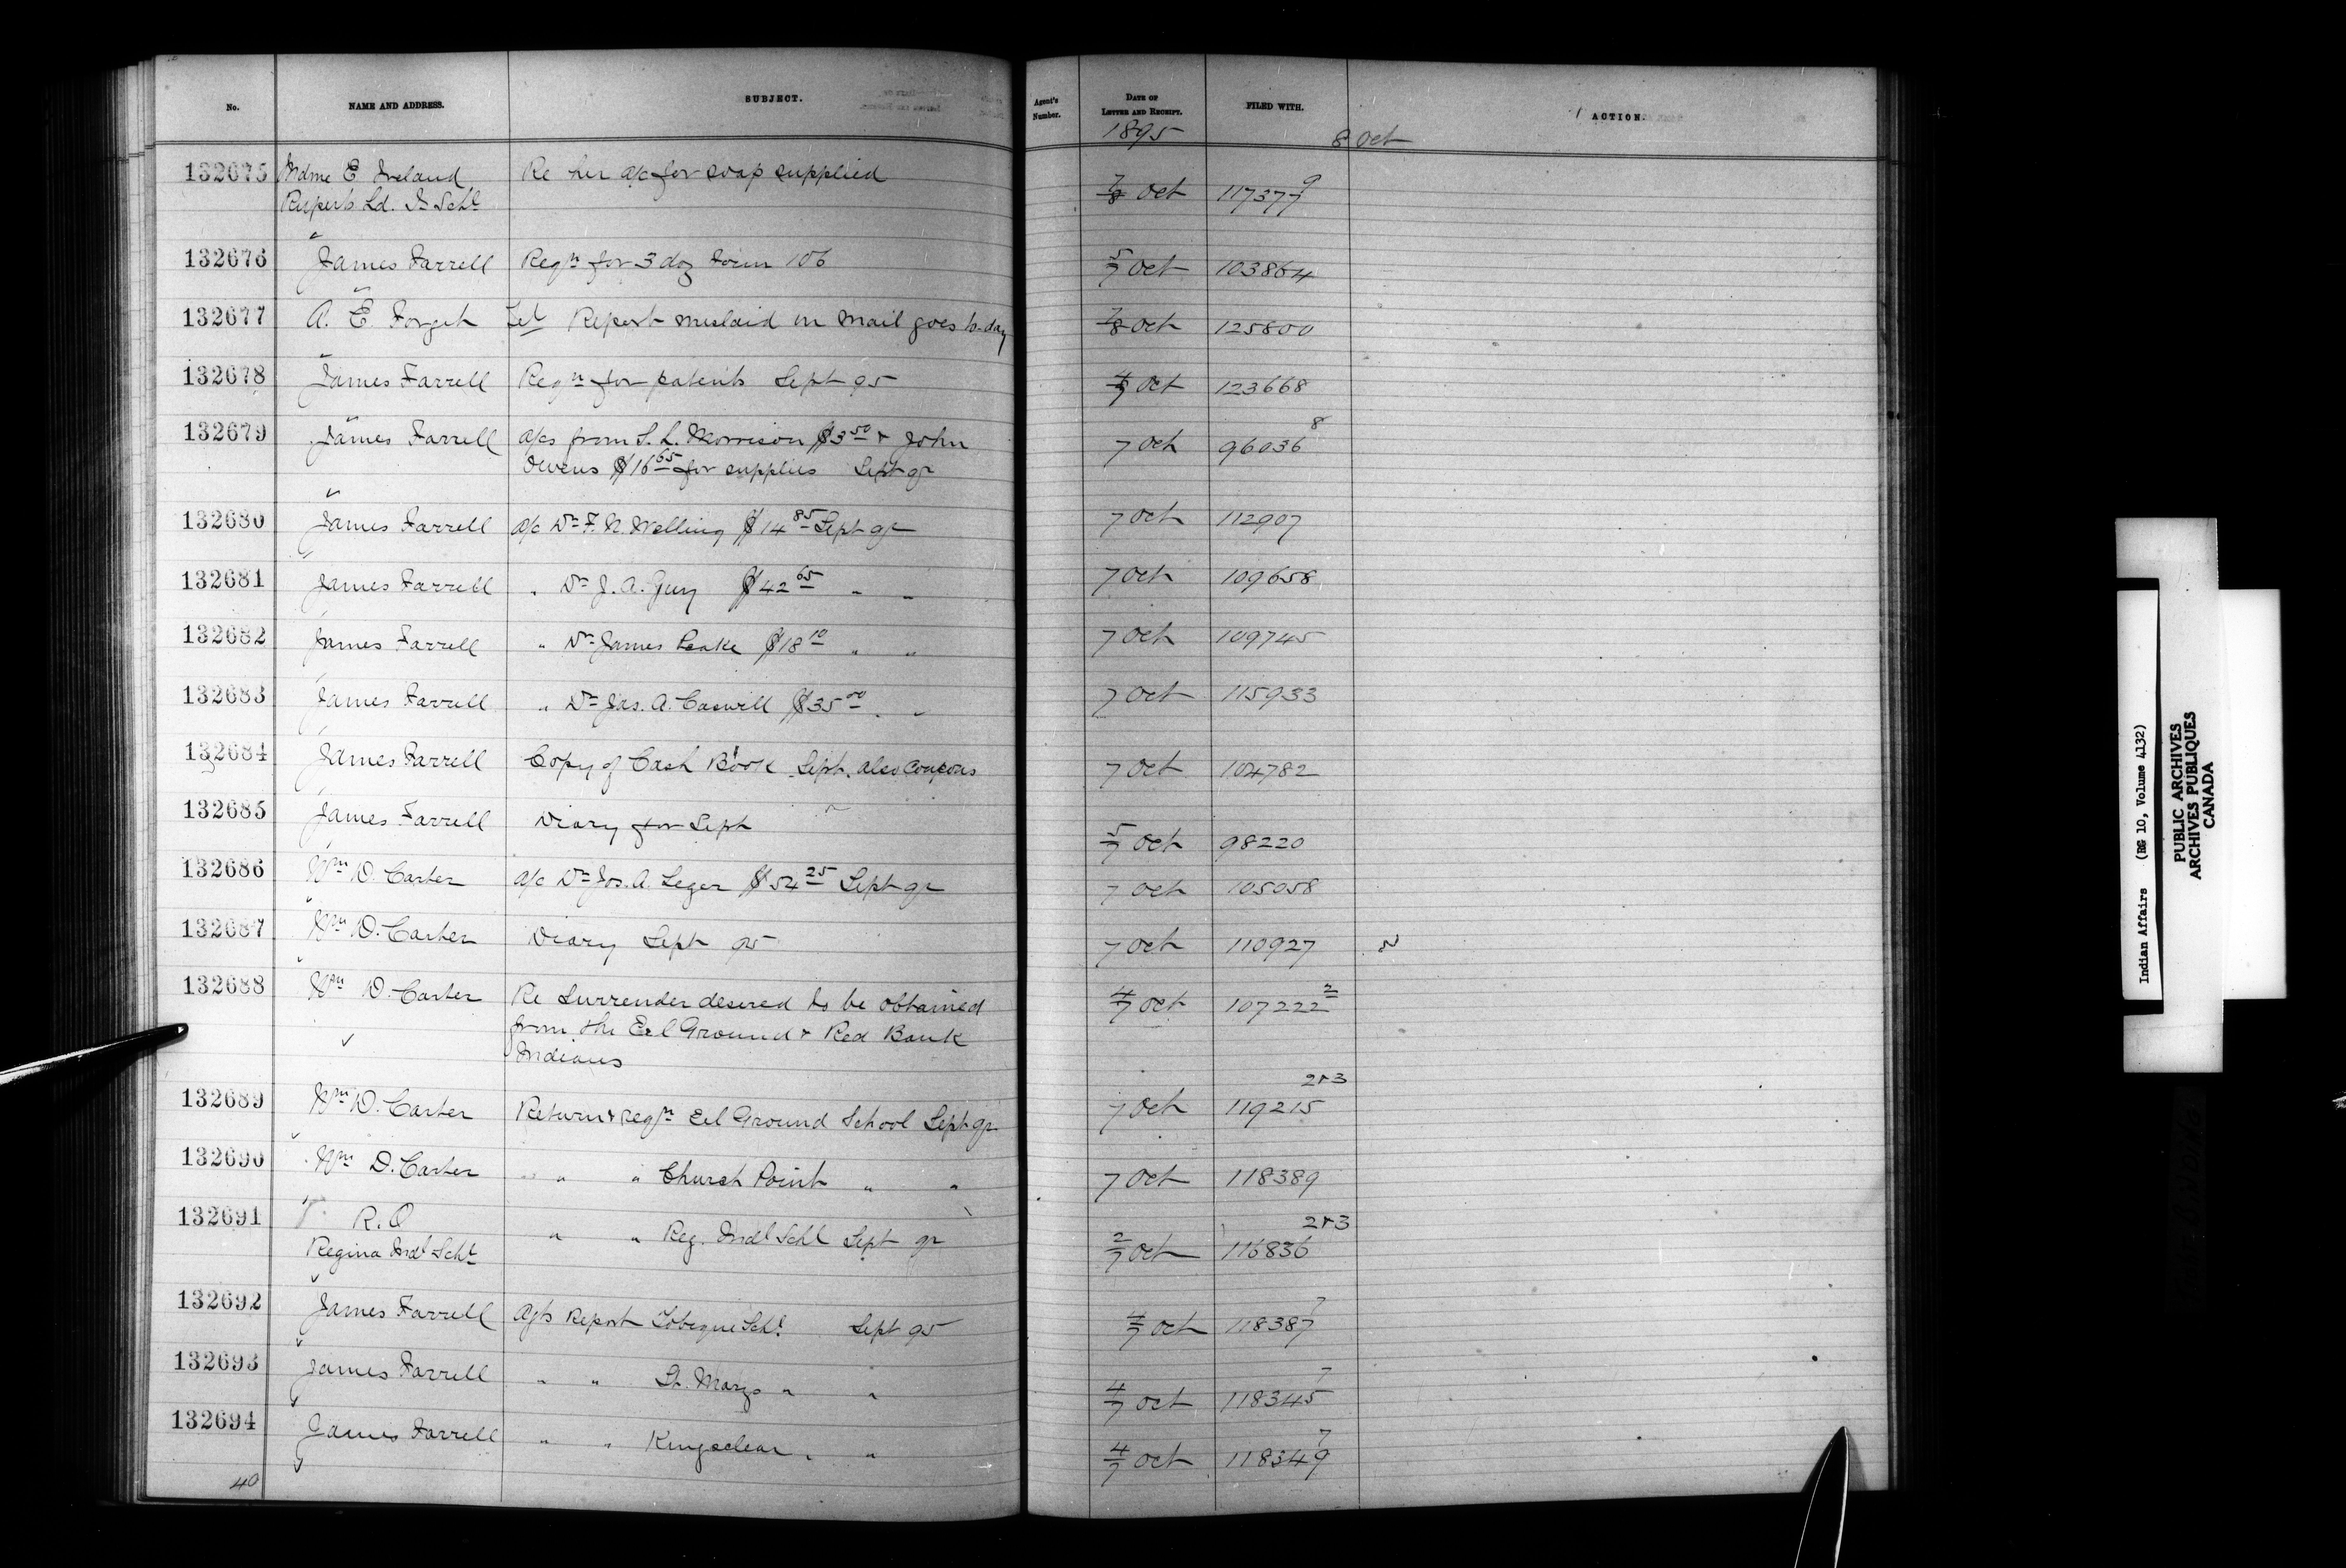 No. NAME AND ADDRESS. SUBJECT. Agent's Number. DATE OF LETTER AND RECEIPT. FILED WITH. ACTION.
1895 8 Oct
132675 Mdme E Ireland Re her a/c for soap supplied 7/8 Oct 117377 9
Rupert's Ld. I Schl
132676 James Farrell Reqn for 3 doz Form 106 5/7 Oct 103864
132677 A. E Forget Tel Report mislaid in mail goes to-day 7/8 Oct 125800
132678 James Farrell Reqn for patents Sept 95 4/7 Oct 123668
132679 James Farrell a/cs from S. L. Morrison $3 50 & John 7 Oct 96036 8
Owens $16 65 for supplies Sept qr
132680 James Farrell a/c Dr F. N. Welling $14 85 Sept qr 7 Oct 112907
132681 James Farrell " Dr J. A. Guy $42 65 " " 7 Oct 109658
132682 James Farrell " Dr James Peake $18 10 " " 7 Oct 109745
132683 James Farrell " Dr Jas. A. Caswill $35 00 " " 7 Oct 115933
132684 James Farrell Copy of Cash Book Sept. also Coupons 7 Oct 104782
132685 James Farrell Diary for Sept 5/7 Oct 98220
132686 Wm D. Carter a/c Dr Jos. A. Leger $54 25 Sept qr 7 Oct 105058
132687 Wm D. Carter Diary Sept 95 7 Oct 110927
132688 Wm D. Carter Re Surrender desired to be obtained 4/7 Oct 107222 2
from the Eel Ground & Red Bank
Indians
132689 Wm D. Carter Return & reqn Eel Ground School Sept qr 7 Oct 119215 2&3
132690 Wm D. Carter " " Church Point " " 7 Oct 118389
132691 R. O " " Reg. Indl Schl Sept qr 2/7 Oct 116836 2&3
Regina Indl Schl
132692 James Farrell Agts Report Tobique Schl Sept 95 4/7 Oct 118387 7
132693 James Farrell " " St. Marys " " 4/7 Oct 118345 7
132694 James Farrell " " Kingsclear " " 4/7 Oct 118349 7
40
Indian Affairs (RG 10, Volume 4132)
PUBLIC ARCHIVES
ARCHIVES PUBLIQUES
CANADA